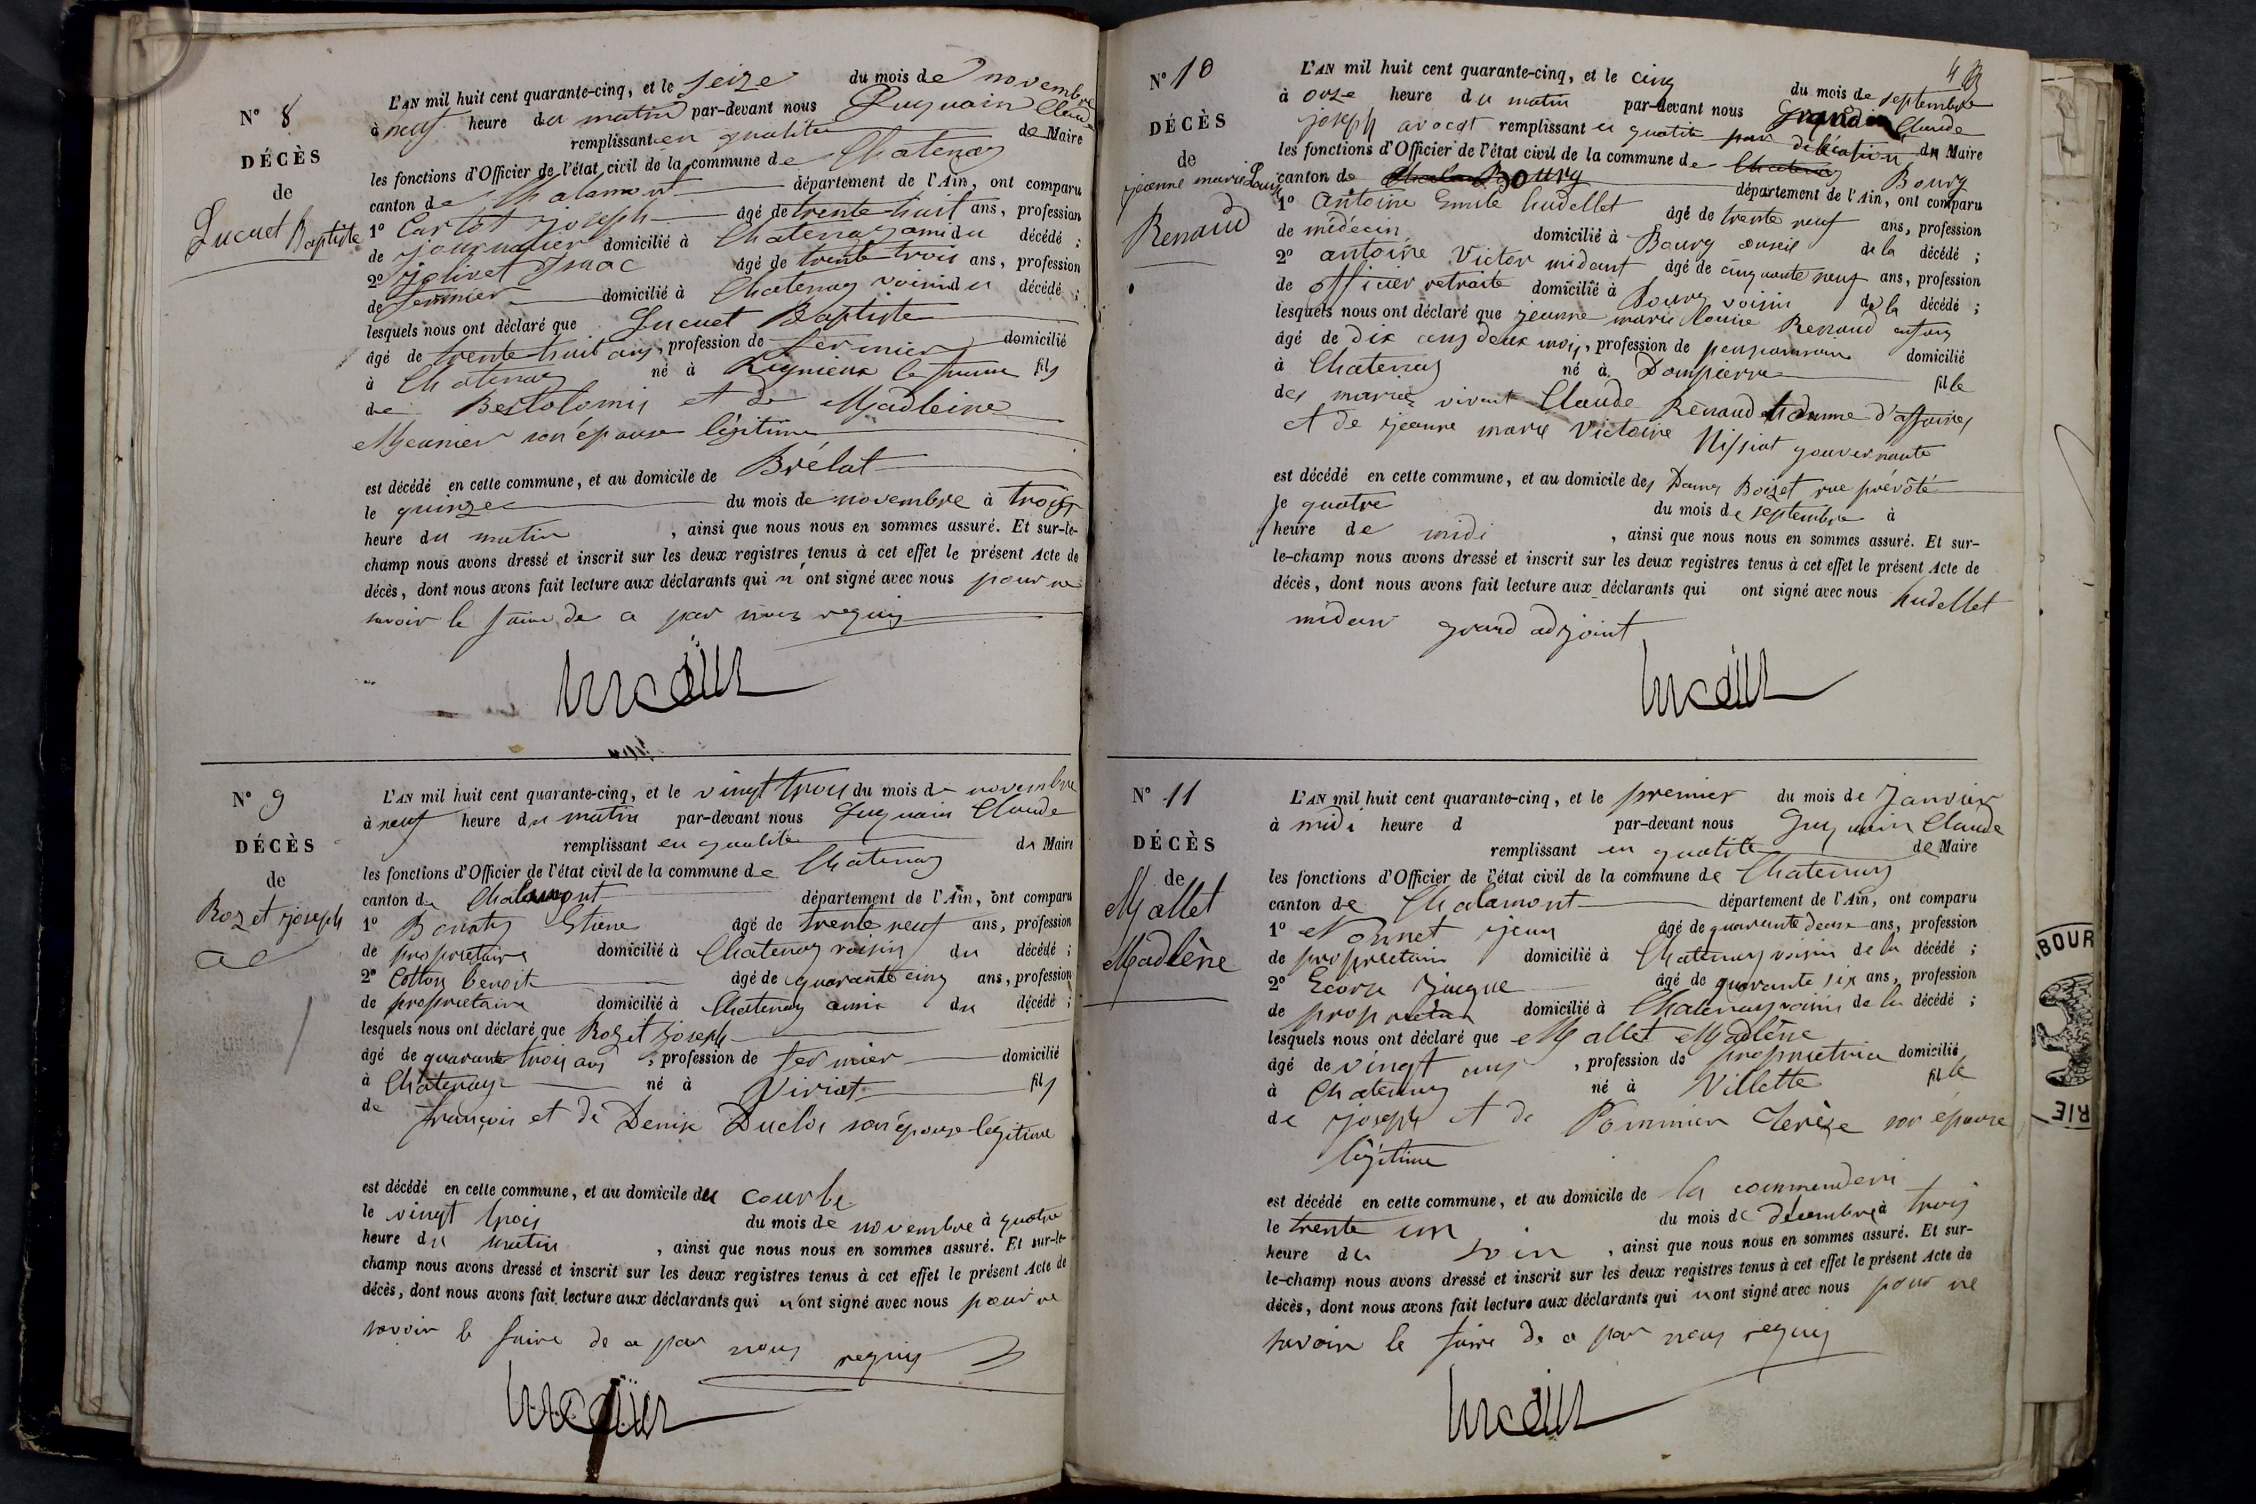 N° 8
DÉCÈS
de
Lucuet Baptiste
L'AN mil huit cent quarante-cinq, et le seize du mois de novembre
à neuf heure du matin par-devant nous Claude
remplissant en qualité de Maire
les fonctions d'Officier de l'état civil de la commune de Chatenay
canton de Chalamont département de l'Ain, ont comparu
1° Cartot joseph âgé de trente huit ans, profession
de journalier domicilié à Chatenay ami du décédé ;
2° Jolivet Isaac âgé de trente trois ans, profession
de fermier domicilié à Chatenay voisin du décédé ;
lesquels nous ont déclaré que Lucuet Baptiste
âgé de trente huit ans, profession de fermier domicilié
à Chatenay né à Rignieux le franc fils
de Bertolomis et de Madleine
Meunier son épouse légitime
est décédé en cette commune, et au domicile de Brélat
le quinze du mois de novembre à trois
heure du matin , ainsi que nous nous en sommes assuré. Et sur-le-
champ nous avons dressé et inscrit sur les deux registres tenus à cet effet le présent Acte de
décès, dont nous avons fait lecture aux déclarants qui n'ont signé avec nous pour ne
savoir le faire de a par nous requis
N° 9
DÉCÈS
de
Rozet joseph
L'AN mil huit cent quarante-cinq, et le vingt trois du mois de novembre
à neuf heure du matin par-devant nous Claude
remplissant en qualité de Maire
les fonctions d'Officier de l'état civil de la commune de Chatenay
canton de Chalamont département de l'Ain, ont comparu
1° Etiene âgé de trente neuf ans, profession
de propriétaire domicilié à Chatenay voisin du décédé ;
2° Cotton benoit âgé de quarante cinq ans, profession
de propriétaire domicilié à Chatenay ami du décédé ;
lesquels nous ont déclaré que Rozet joseph
âgé de quarante trois ans, profession de fermier domicilié
à Chatenay né à Viriat fils
de françois et de Denise Duclos son épouse légitime
est décédé en cette commune, et au domicile du courbe
le vingt trois du mois de novembre à quatre
heure du matin , ainsi que nous nous en sommes assuré. Et sur-le-
champ nous avons dressé et inscrit sur les deux registres tenus à cet effet le présent Acte de
décès, dont nous avons fait lecture aux déclarants qui n'ont signé avec nous pour ne
savoir le faire de a par nous requis
N° 10
DÉCÈS
de
jeanne marie Louise
Renaud
L'AN mil huit cent quarante-cinq, et le cinq du mois de septembre
à onze heure du matin par-devant nous Claude
joseph avocat remplissant en qualité par délégation du Maire
les fonctions d'Officier de l'état civil de la commune de Chatenay Bourg
canton de Bourg département de l'Ain, ont comparu
1° Antoine Emile hudellet âgé de trente neuf ans, profession
de médecin domicilié à Bourg de la décédé ;
2° antoine Victor midant âgé de cinquante neuf ans, profession
de officier retraite domicilié à Bourg voisin de la décédé ;
lesquels nous ont déclaré que jeanne marie louise Renaud
âgé de dix ans deux mois, profession de pensionnaire domicilié
à Chatenay né à Dompierre fille
des mariés vivant Claude Renaud homme d'affaires
et de jeanne marie Victoire Nissiat gouvernante
est décédé en cette commune, et au domicile des Dames Boizet rue prévôté
le quatre du mois de septembre à
heure de midi , ainsi que nous nous en sommes assuré. Et sur-
le-champ nous avons dressé et inscrit sur les deux registres tenus à cet effet le présent Acte de
décès, dont nous avons fait lecture aux déclarants qui ont signé avec nous hudellet
midan grand adjoint
N° 11
DÉCÈS
de
Mallet
Madlène
L'AN mil huit cent quarante-cinq, et le premier du mois de Janvier
à midi heure d par-devant nous Claude
remplissant en qualité de Maire
les fonctions d'Officier de l'état civil de la commune de Chatenay
canton de Chalamont département de l'Ain, ont comparu
1° Nonnet jean âgé de quarante deux ans, profession
de propriétaire domicilié à Chatenay voisin de la décédé ;
2° âgé de quarante six ans, profession
de domicilié à Chatenay voisin de la décédé ;
lesquels nous ont déclaré que Mallet Madlène
âgé de vingt ans , profession de domicilié
à Chatenay né à Villette fille
de joseph et de Pommier terèze son épouse
légitime
est décédé en cette commune, et au domicile de la commenderi
le trente un du mois de décembre à trois
heure du soir , ainsi que nous nous en sommes assuré. Et sur-
le-champ nous avons dressé et inscrit sur les deux registres tenus à cet effet le présent Acte de
décès, dont nous avons fait lecture aux déclarants qui n'ont signé avec nous pour ne
savoir le faire de a par nous requis
BOUR
RIE